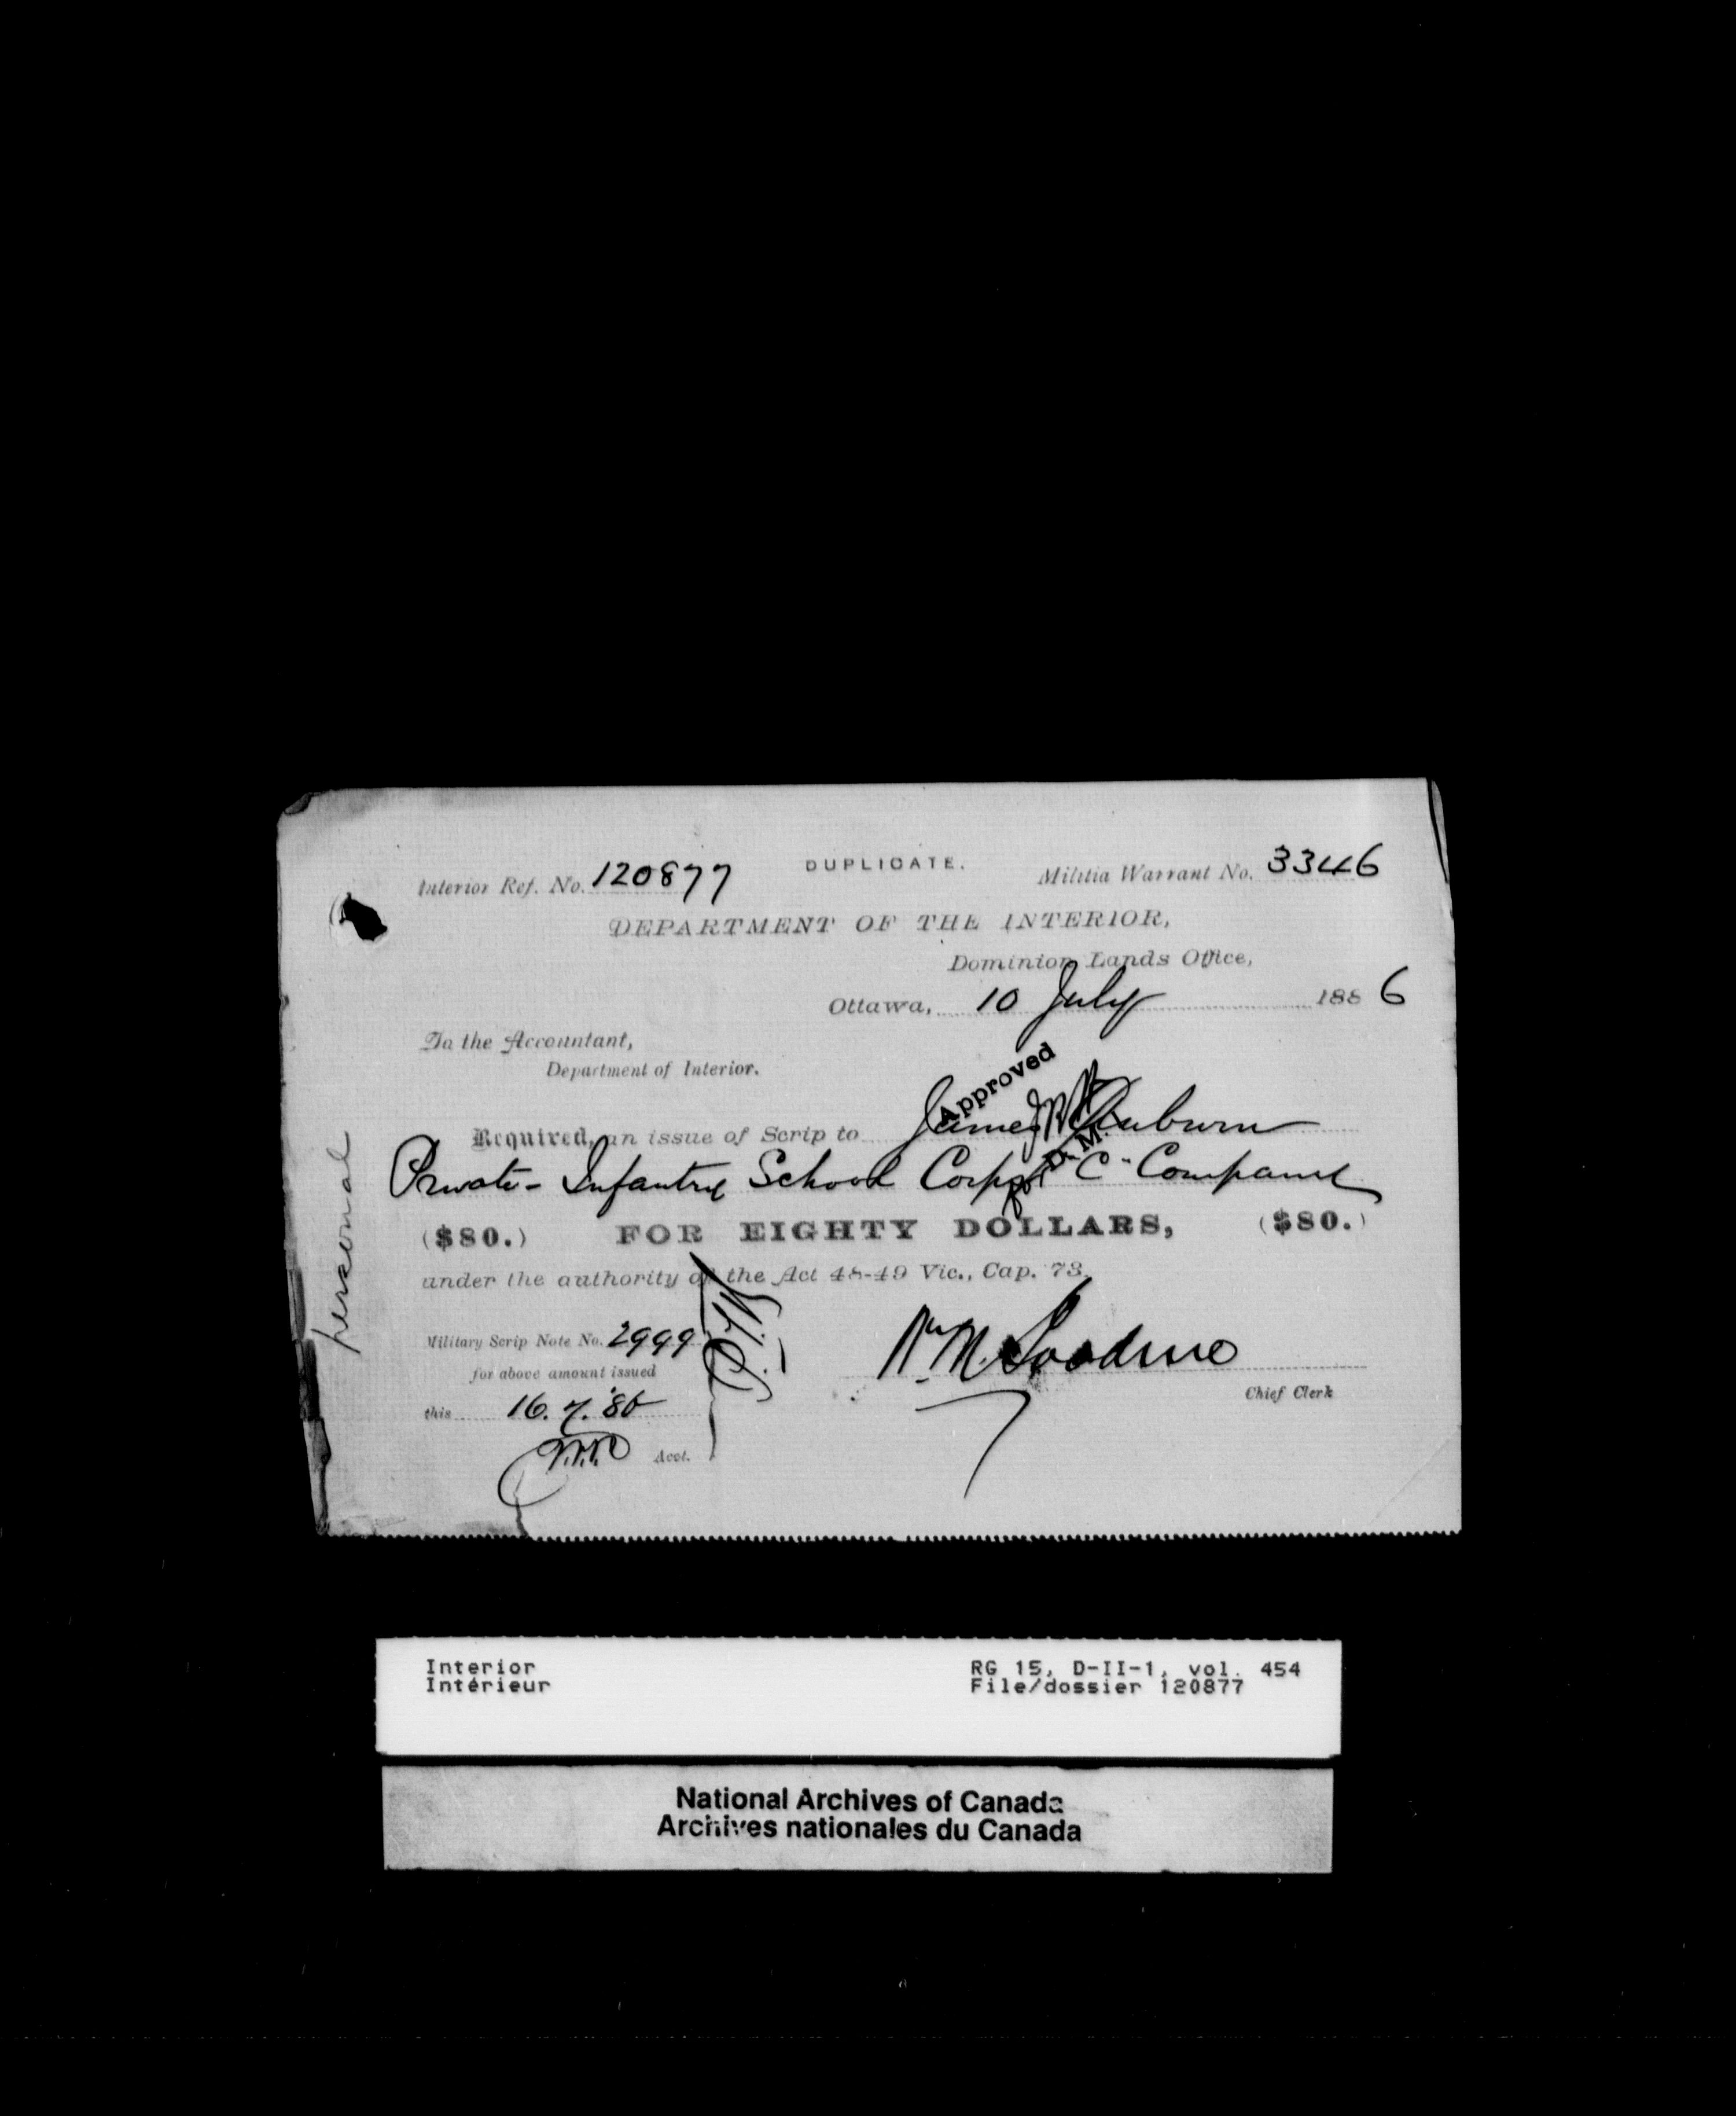 DUPLICATE.
Interior Ref. No. 120877
Militia Warrant No. 3346
DEPARTMENT OF THE INTERIOR,
Dominion Lands Office,
Ottawa, 10 July 1886
To the Accountant,
Department of Interior.
Approved
Required, an issue of Scrip to James Auburn
for D. M.
Private - Infantry School Corps "C" Company
($80.) FOR EIGHTY DOLLARS, ($80.)
under the authority of the Act 48-49 Vic., Cap. 73.
Military Scrip Note No. 2999
for above amount issued
this 16.7.'86
Chief Clerk
Acct.
personal
Interior
Intérieur
RG 15, D-II-1, vol. 454
File/dossier 120877
National Archives of Canada
Archives nationales du Canada